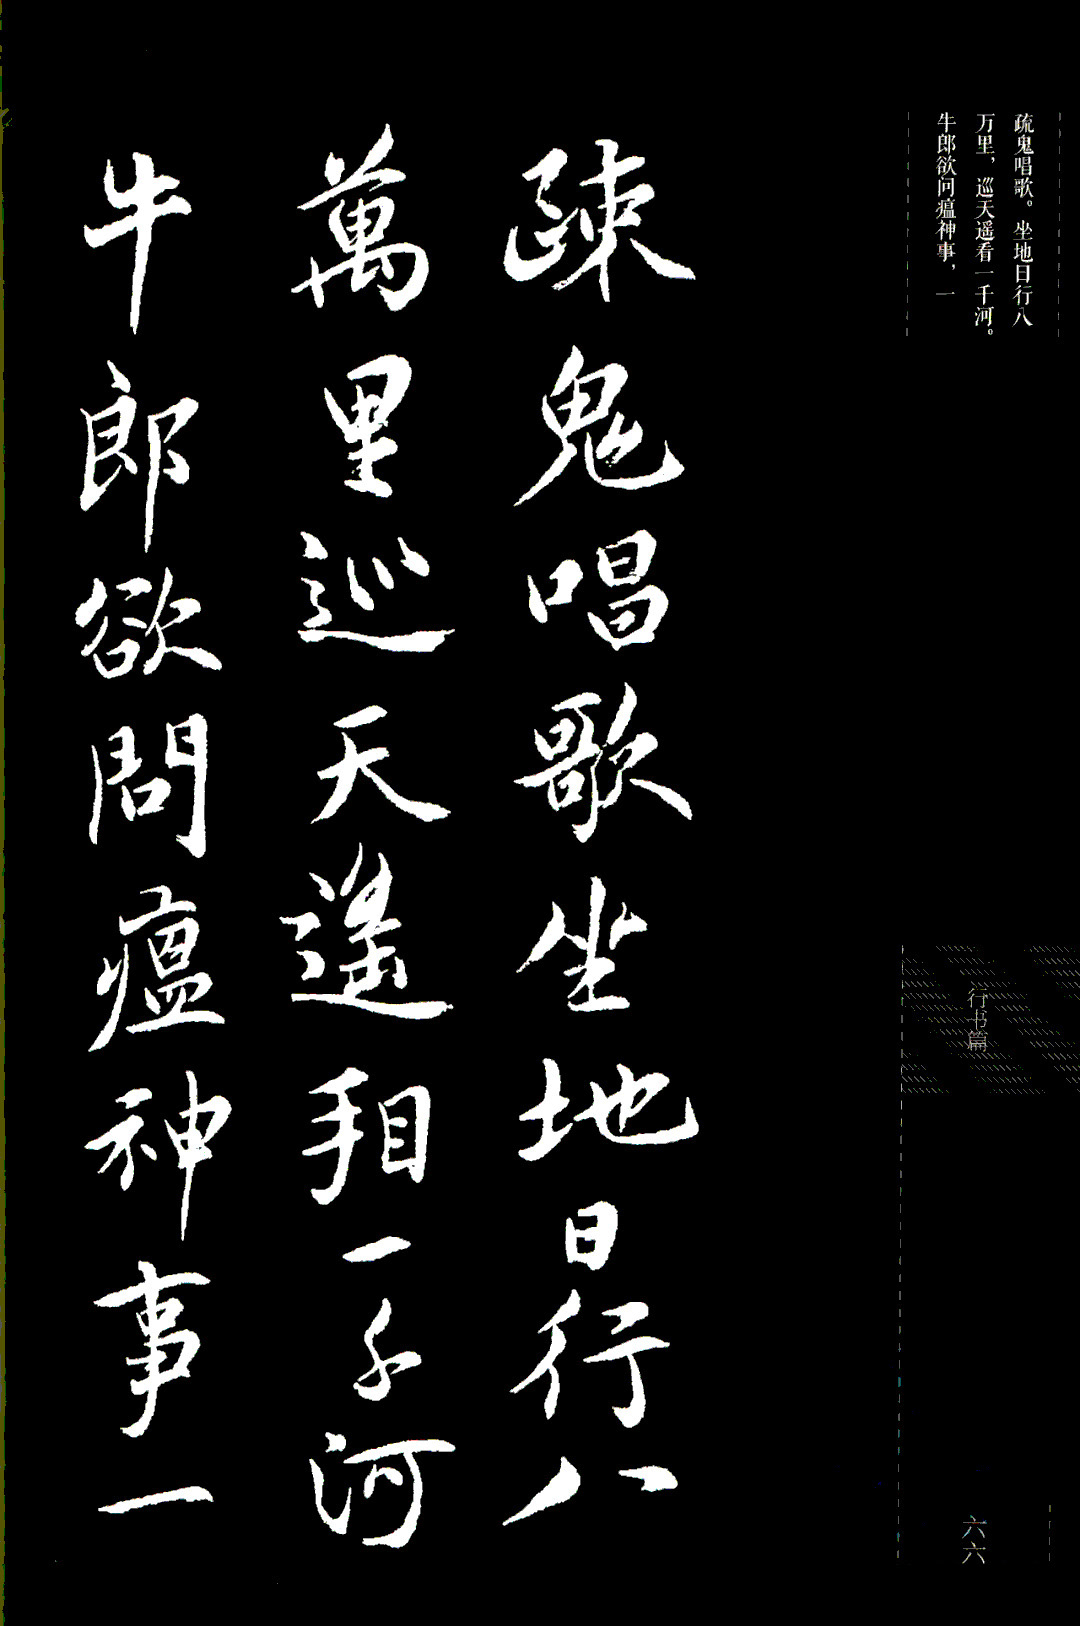 疏鬼唱歌。坐地日行八
万里，巡天遥看一千河。
牛郎欲问瘟神事，一
行书篇
六六
踈鬼唱歌坐地日行八
萬里巡天遥相一千河
牛郎欲問瘟神事一